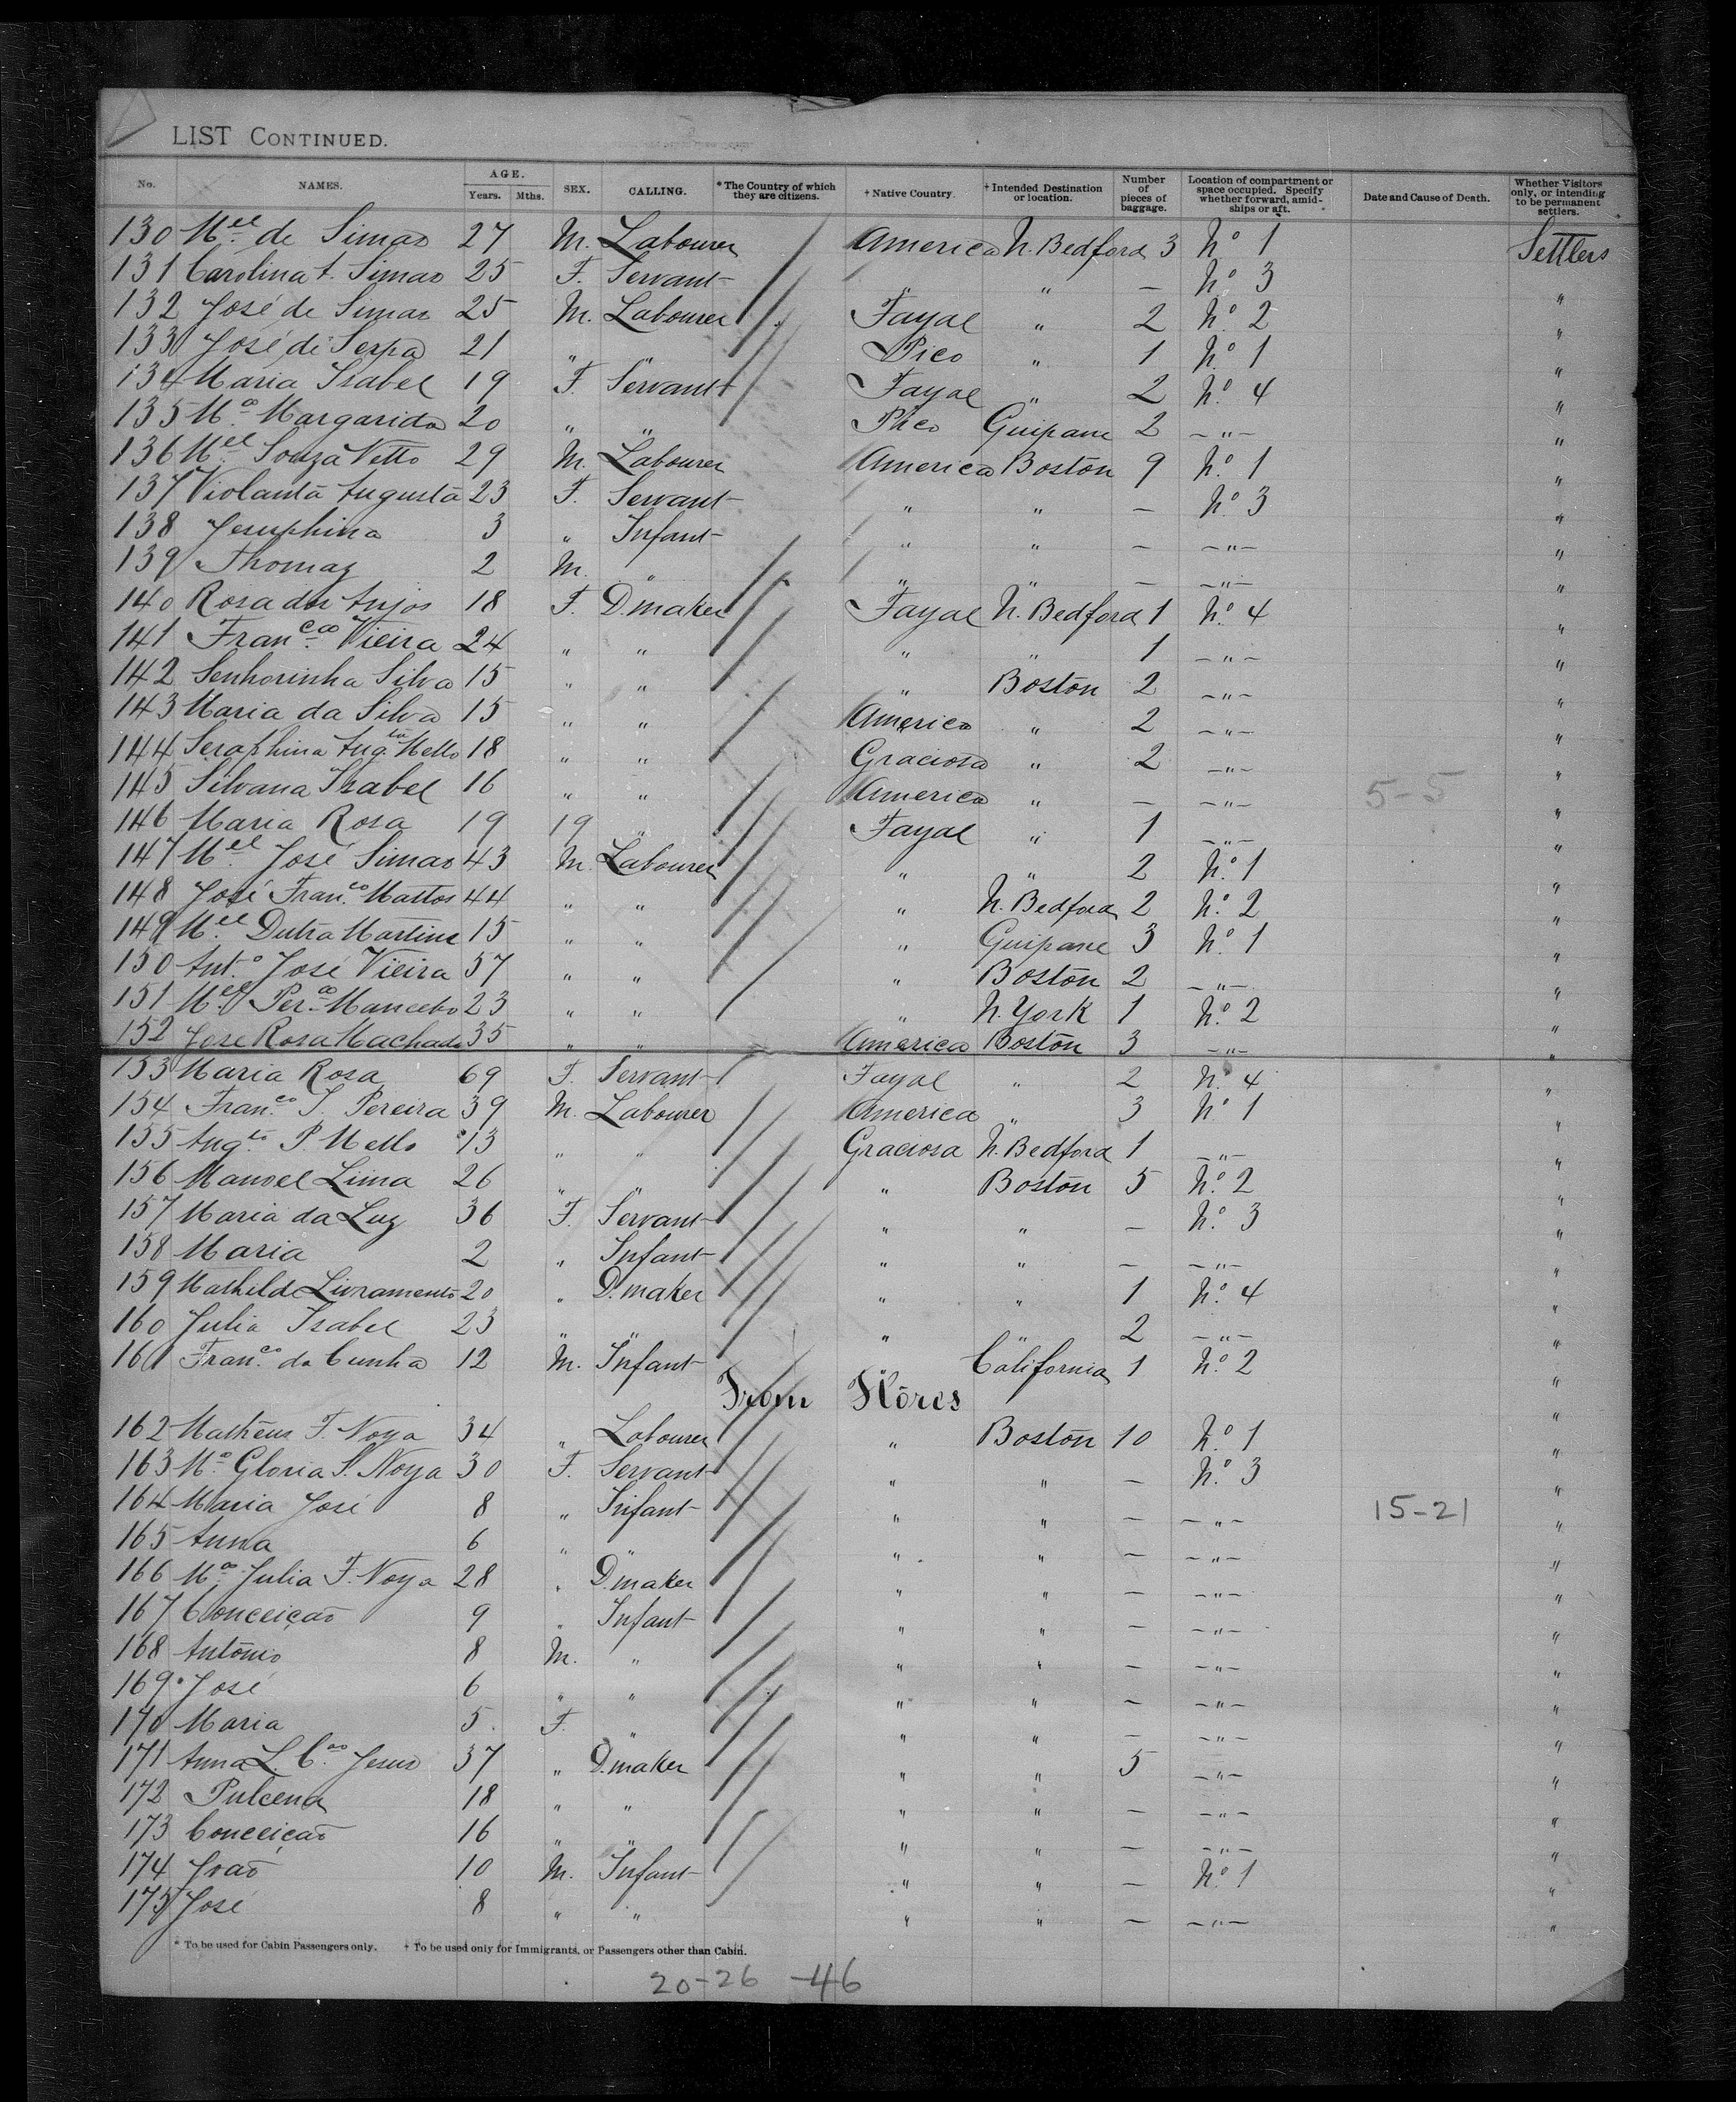 LIST CONTINUED.
No. NAMES. AGE. Years. Mths. SEX. CALLING. * The Country of which they are citizens. † Native Country. † Intended Destination or location. Number of pieces of baggage. Location of compartment or space occupied. Specify whether forward, amid-ships or aft. Date and Cause of Death. Whether Visitors only, or intending to be permanent settlers.
130 Mel. de Simas 27 M. Labourer America N. Bedford 3 No. 1 Settlers
131 Carolina A. Simas 25 F. Servant " " — No. 3 "
132 José de Simas 25 M. Labourer Fayal " 2 No. 2 "
133 José de Serpa 21 " " Pico " 1 No. 1 "
134 Maria Isabel 19 F. Servant Fayal " 2 No. 4 "
135 Ma. Margarida 20 " " Pico Guipane 2 —"— "
136 Mel. Souza Netto 29 M. Labourer America Boston 9 No. 1 "
137 Violanta Augusta 23 F. Servant " " — No. 3 "
138 Jesuphina 3 " Infant " " — —"— "
139 Thomaz 2 M. " " " — —"— "
140 Rosa dos Anjos 18 F. D.maker Fayal N. Bedford 1 No. 4 "
141 Franca. Vieira 24 " " " " 1 —"— "
142 Senhorinha Silva 15 " " " Boston 2 —"— "
143 Maria da Silva 15 " " America " 2 —"— "
144 Seraphina Augta. Mello 18 " " Graciosa " 2 —"— "
145 Silvana Isabel 16 " " America " — —"— 5-5 "
146 Maria Rosa 19 19 " Fayal " 1 —"— "
147 Mel. José Simas 43 M. Labourer " " 2 No. 1 "
148 José Franco. Mattos 44 " " " N. Bedford 2 No. 2 "
149 Mel. Dutra Martins 15 " " " Guipane 3 No. 1 "
150 Anto. José Vieira 57 " " " Boston 2 —"— "
151 Mel. Pera. Mancebo 23 " " " N. York 1 No. 2 "
152 José Rosa Machado 35 " " America Boston 3 —"— "
153 Maria Rosa 69 F. Servant Fayal " 2 No. 4 "
154 Franco. S. Pereira 39 M. Labourer America " 3 No. 1 "
155 Augto. P. Mello 13 " " Graciosa N. Bedford 1 —"— "
156 Manoel Lima 26 " " " Boston 5 No. 2 "
157 Maria da Luz 36 F. Servant " " — No. 3 "
158 Maria 2 " Infant " " — —"— "
159 Mathilde Livramento 20 " D.maker " " 1 No. 4 "
160 Julia Isabel 23 " " " " 2 —"— "
161 Franco. da Cunha 12 M. Infant California 1 No. 2 "
From Flôres "
162 Matheus F. Noya 34 " Labourer " Boston 10 No. 1 "
163 Ma. Gloria S. Noya 30 F. Servant " " — No. 3 "
164 Maria José 8 " Infant " " — —"— 15-21 "
165 Anna 6 " " " " — —"— "
166 Ma. Julia F. Noya 28 " D.maker " " — —"— "
167 Conceição 9 " Infant " " — —"— "
168 António 8 M. " " " — —"— "
169 José 6 " " " " — —"— "
170 Maria 5 F. " " " — —"— "
171 Anna L. Cão Jesus 37 " D.maker " " 5 —"— "
172 Pulcena 18 " " " " — —"— "
173 Conceição 16 " " " " — —"— "
174 João 10 M. Infant " " — No. 1 "
175 José 8 " " " " — —"— "
* To be used for Cabin Passengers only. † To be used only for Immigrants, or Passengers other than Cabin.
20-26 -46